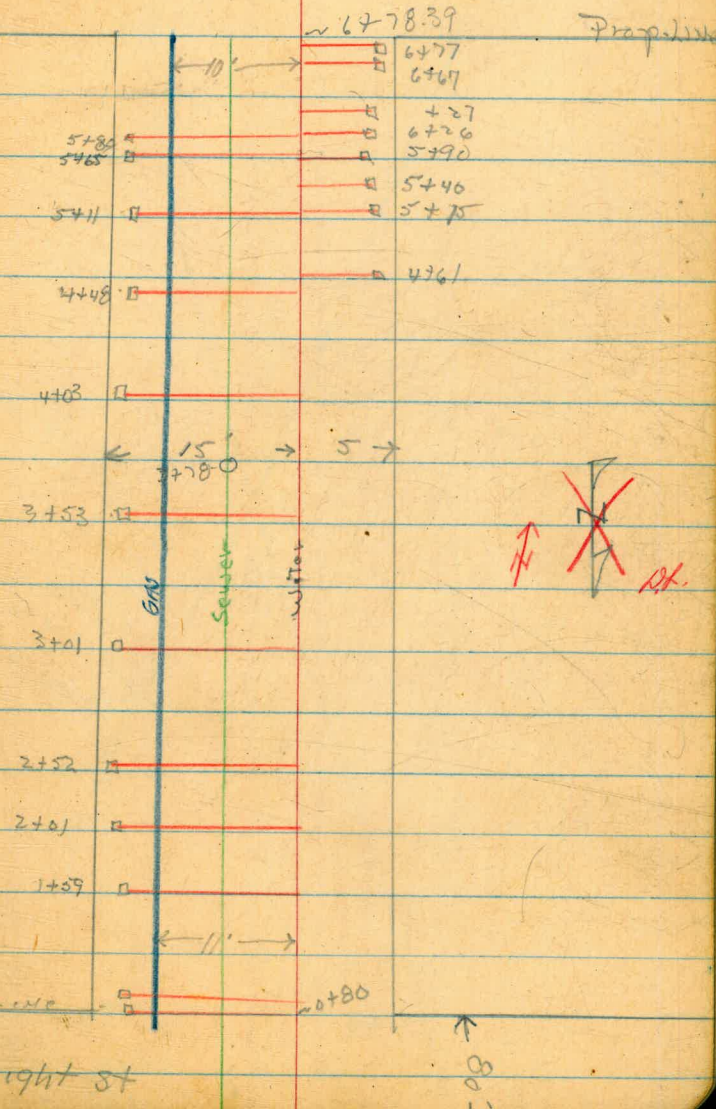 6+78.39
Prop. Line
10'
6+77
6+67
+27
5+80
6+26
5+65
5+90
5+40
5+11
5+15
4+61
4+48
4+03
15'
5
3+78
3+53
Gas
Sewer
Water
N
N
3+01
2+52
2+01
1+59
11'
0+80
ight St
80